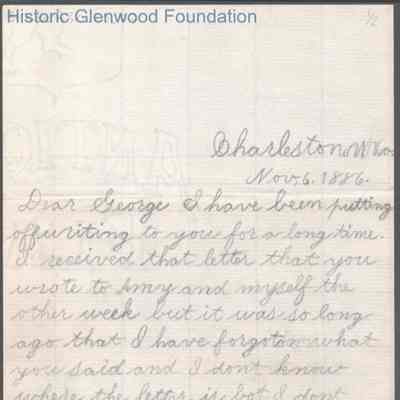 Historic Glenwood Foundation
1/2
Charleston, W Va
Nov, 6, 1886.
Dear George I have been putting
off writing to you for a long time.
I received that letter that you
wrote to Amy and myself the
other week but it was so long
ago that I have forgoton what
you said and I dont know
where the letter is but I dont